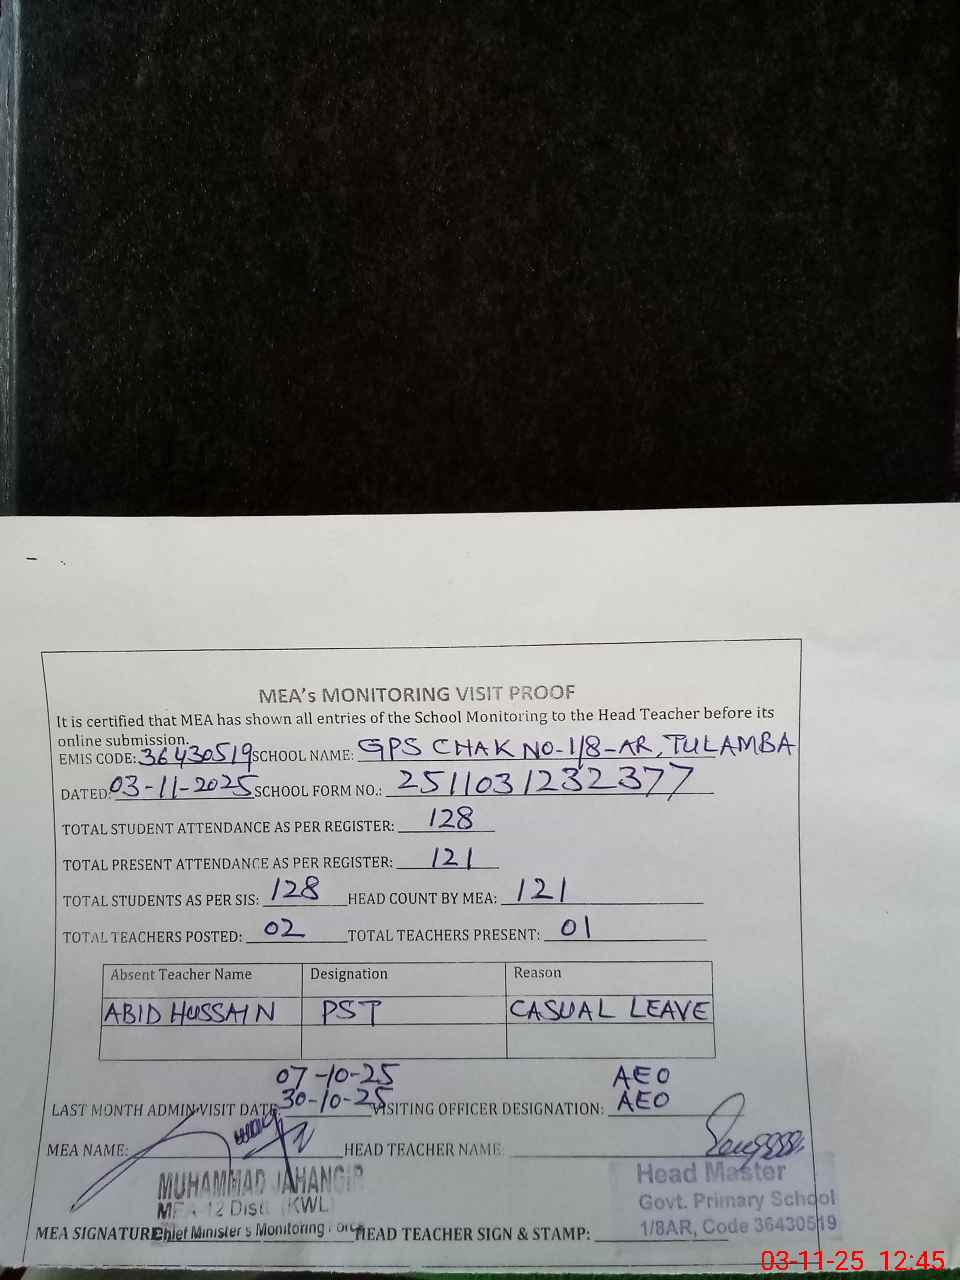 MEA's MONITORING VISIT PROOF
It is certified that MEA has shown all entries of the School Monitoring to the Head Teacher before its
online submission.
EMIS CODE: 36430519 SCHOOL NAME: GPS CHAK NO-1/8-AR, TULAMBA
DATED: 03-11-2025 SCHOOL FORM NO.: 2511031232377
TOTAL STUDENT ATTENDANCE AS PER REGISTER: 128
TOTAL PRESENT ATTENDANCE AS PER REGISTER: 121
TOTAL STUDENTS AS PER SIS: 128 HEAD COUNT BY MEA: 121
TOTAL TEACHERS POSTED: 02 TOTAL TEACHERS PRESENT: 01
Absent Teacher Name Designation Reason
ABID HUSSAIN PST CASUAL LEAVE
07-10-25 AEO
LAST MONTH ADMIN VISIT DATE: 30-10-25 VISITING OFFICER DESIGNATION: AEO
MEA NAME: HEAD TEACHER NAME:
MUHAMMAD JAHANGIR
MEA-12 Distt. (KWL)
Chief Minister's Monitoring Force
Head Master
Govt. Primary School
1/8AR, Code 36430519
MEA SIGNATURE HEAD TEACHER SIGN & STAMP:
03-11-25 12:45